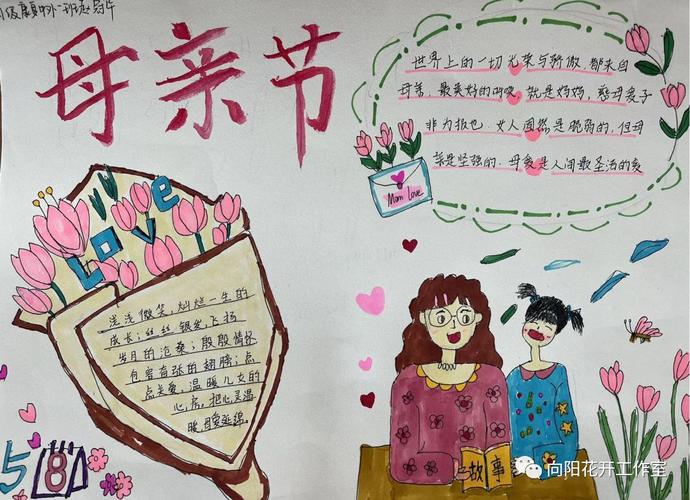 母亲节
世界上的一切光荣与骄傲，都来自
母亲，最美好的呼唤，就是妈妈，慈母爱子
非为报也，女人固然是脆弱的，但母
亲是坚强的，母爱是人间最圣洁的爱
Mom Love
Love
浅浅微笑，灿烂一生的
成长；丝丝银发，飞扬
岁月的沧桑；殷殷情怀
包容奋张的翅膀；点
点关爱，温暖儿女的
心房，把心灵温
暖，母爱延绵
58
故事
向阳花开工作室